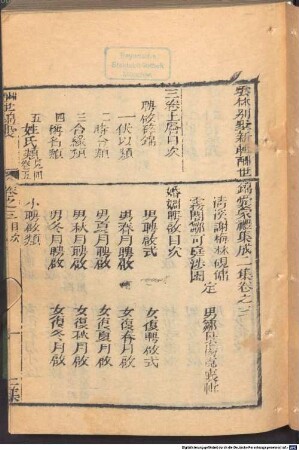 雲林別墅新輯酬世錦囊家禮集成二集卷之三
清溪謝梅林硯傭
霧閣鄒可庭涉園 定
男鄒景揚克襄輯
三卷上層目次
聘啟碎錦
一伏以類
二
三合
四稱名類
五姓氏類
婚姻聘啟目次
男聘啟式 女復聘啟式
男春月聘啟 女復春月啟
男夏月聘啟 女復夏月啟
男秋月聘啟 女復秋月啟
男冬月聘啟 女復冬月啟
小聘啟類
卷之三目次
二集
Bayerische
Staatsbibliothek
München